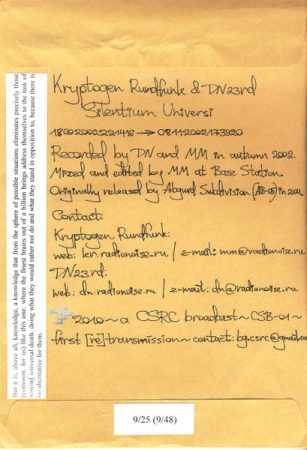 Kryptogen Rundfunk & DN23rd
Silentium Universi
18092002221418 → 08112002173920
Recorded by DN and MM in autumn 2002.
Mixed and edited by MM at Base Station.
Originally released by Abgurd Subdivision in
Contact:
Kryptogen Rundfunk:
web: kr.radionoise.ru / e-mail: mm@radionoise.ru
DN23rd:
web: dn.radionoise.ru / e-mail: dn@radionoise.ru
2010 ~ a CSRC broadcast ~ CSB-01 ~
first [re]transmission ~ contact: bgcsrc@gmail.com
But it is, above all, knowledge, a knowledge that from the sphere of possible situations eliminates precisely those
(common, for us) like this one: where the finest brains out of a billion beings address themselves to the task of
sowing universal death, doing what they would rather not do and what they stand in opposition to, because there is
no alternative for them.
9/25 (9/48)